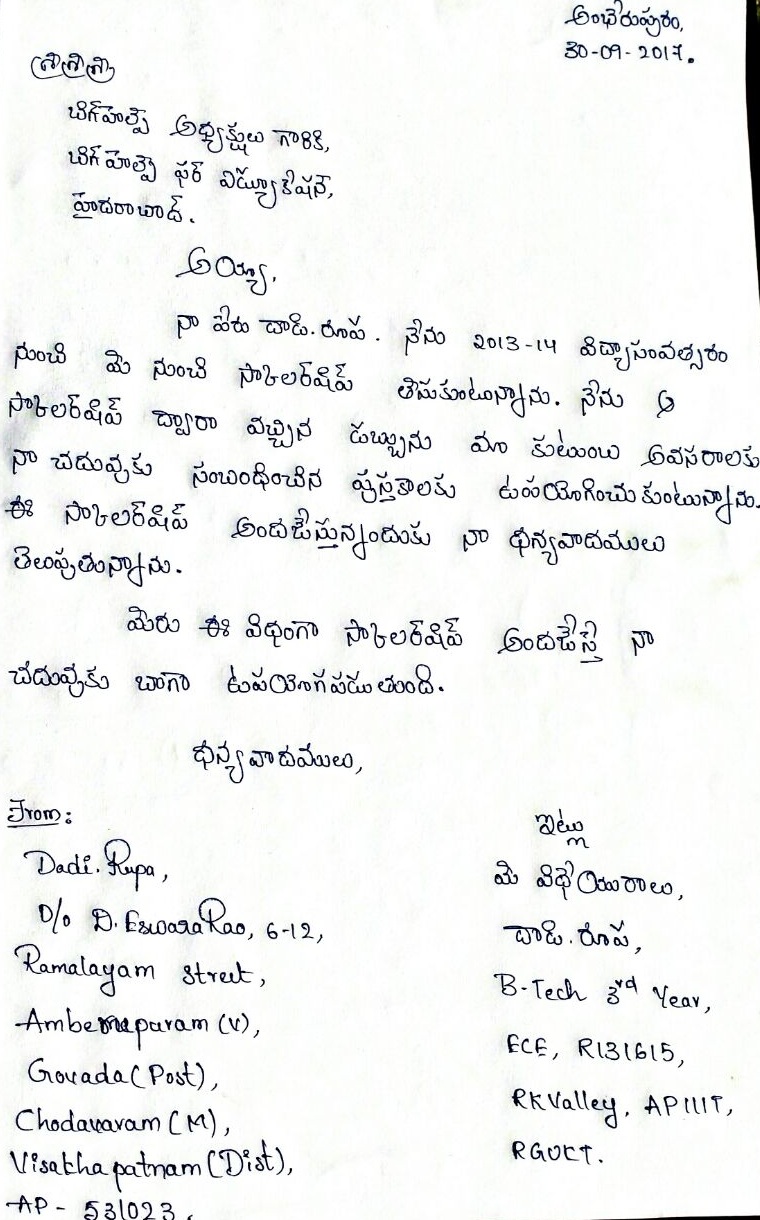 అంభేరుపురం,
30-09-2017.
శ్రీశ్రీశ్రీ
బిగ్‌హెల్ప్ అధ్యక్షులు గారికి,
బిగ్‌హెల్ప్ ఫర్ ఎడ్యూకేషన్,
హైదరాబాద్.
అయ్యా,
నా పేరు దాడి.రూప. నేను 2013-14 విద్యాసంవత్సరం
నుంచి మీ నుంచి స్కాలర్‌షిప్ తీసుకుంటున్నాను. నేను ఆ
స్కాలర్‌షిప్ ద్వారా వచ్చిన డబ్బును మా కుటుంబ అవసరాలకు
నా చదువుకు సంబంధించిన పుస్తకాలకు ఉపయోగించుకుంటున్నాను.
ఈ స్కాలర్‌షిప్ అందజేస్తున్నందుకు నా ధన్యవాదములు
తెలుపుతున్నాను.
మీరు ఈ విధంగా స్కాలర్‌షిప్ అందజేస్తే నా
చదువుకు బాగా ఉపయోగపడుతుంది.
ధన్యవాదములు,
From:
Dadi.Rupa,
D/o D.EswaraRao, 6-12,
Ramalayam street,
Amberupuram (v),
Govada(Post),
Chodavaram (M),
Visakhapatnam (Dist),
AP - 531023.
ఇట్లు
మీ విధేయురాలు,
దాడి.రూప,
B-Tech 3rd Year,
ECE, R131615,
RKValley, AP IIIT,
RGUKT.